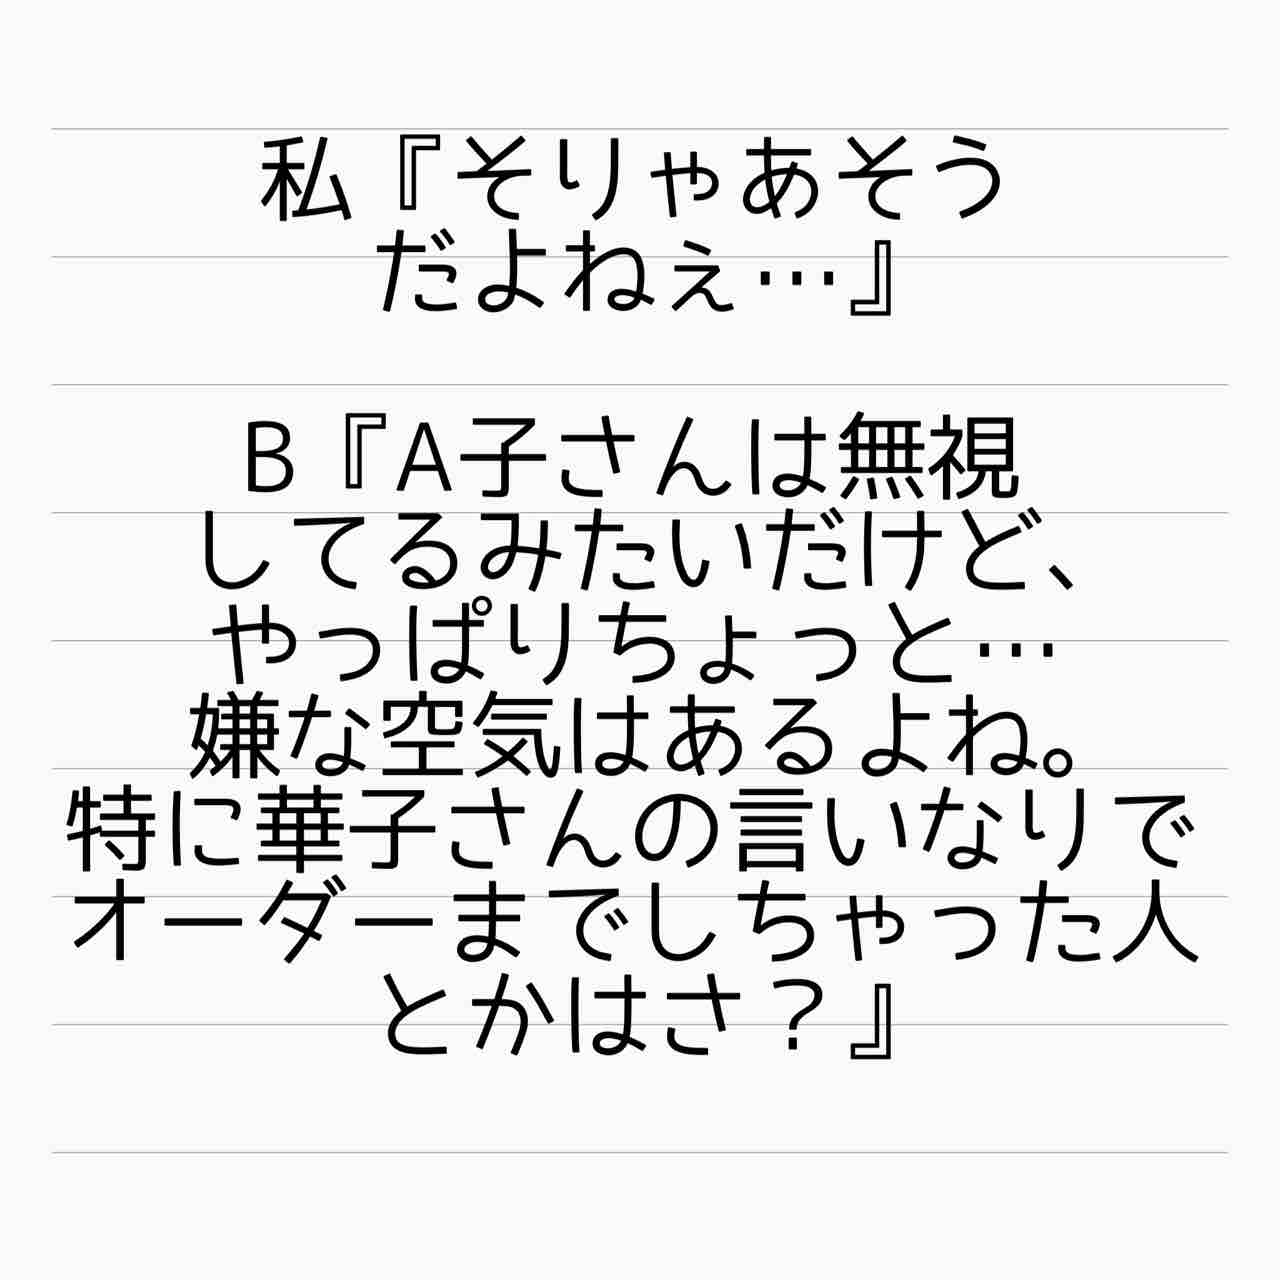 私『そりゃあそう
だよねぇ…』
B『A子さんは無視
してるみたいだけど、
やっぱりちょっと…
嫌な空気はあるよね。
特に華子さんの言いなりで
オーダーまでしちゃった人
とかはさ？』